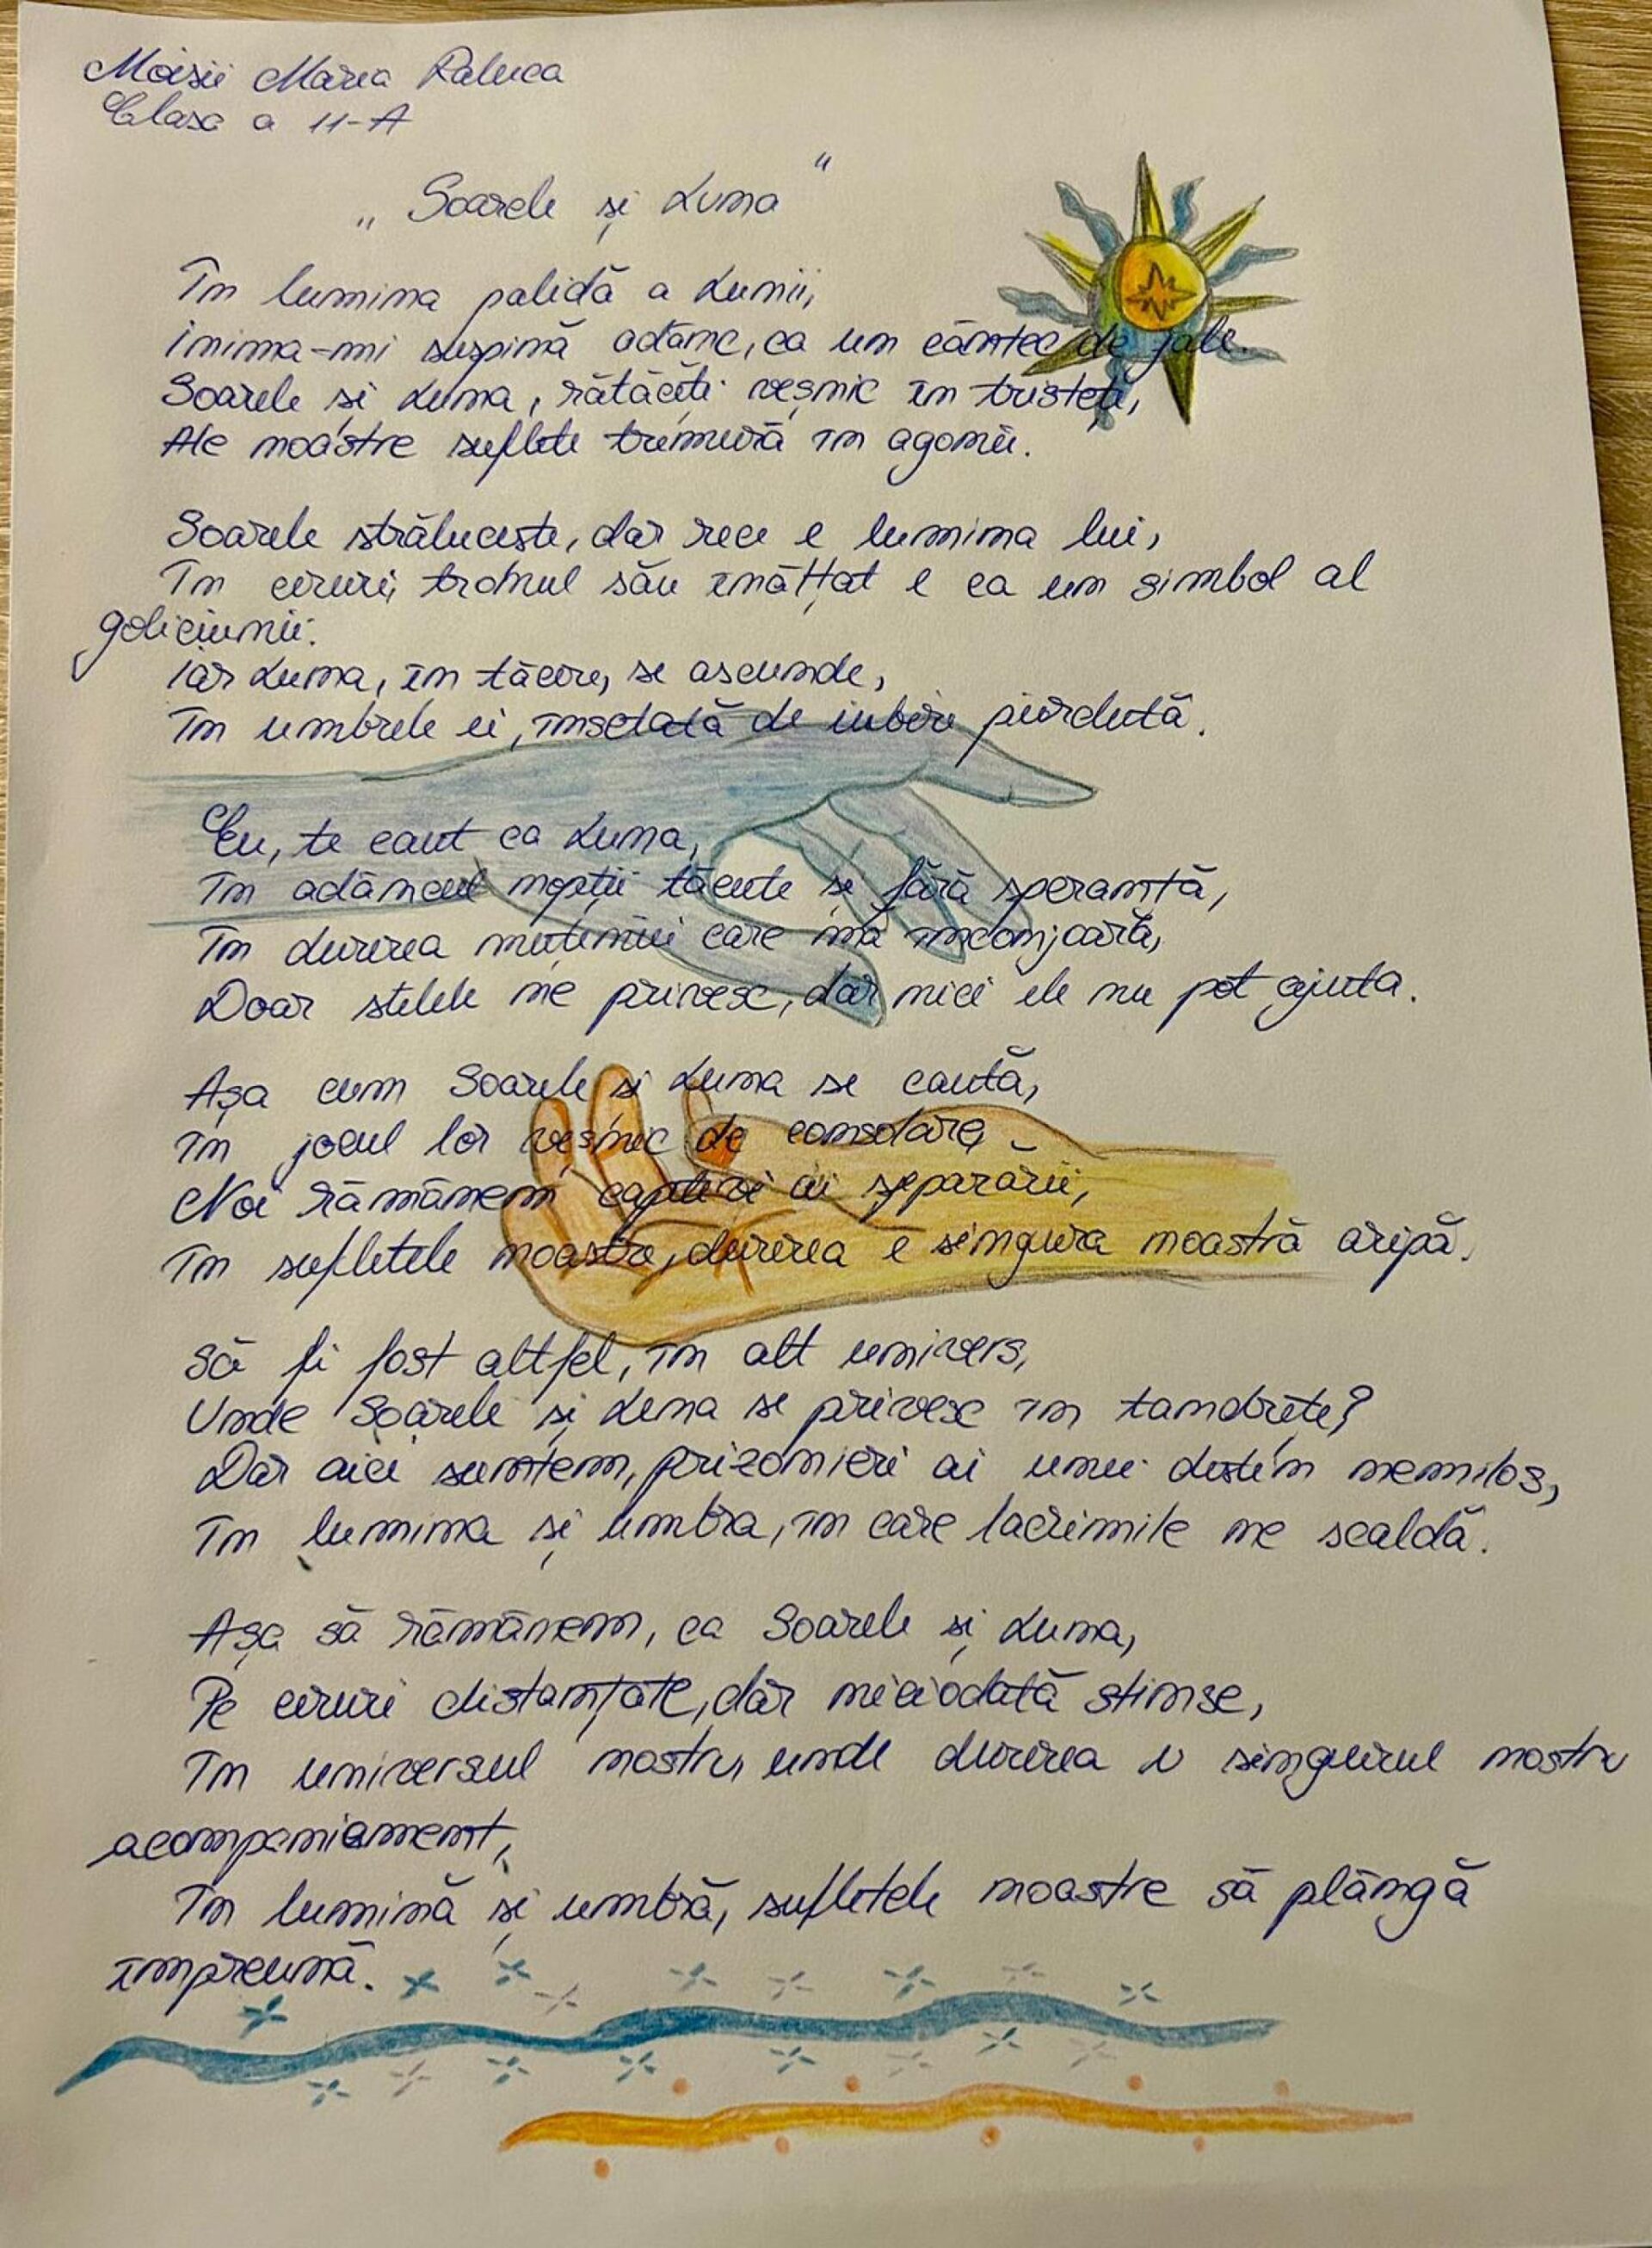 Moisii Maria Raluca
Clasa a 11-A
„Soarele și Luna“
În lumina palidă a Lunii,
inima-mi suspină adânc, ca un cântec de jale.
Soarele și Luna, rătăciți veșnic în tristeți,
Ale noastre suflete tremură în agonii.
Soarele strălucește, dar rece e lumina lui,
În ceruri, tronul său înălțat e ca un simbol al
goliciunii.
iar Luna, în tăcere, se ascunde,
În umbrele ei, însetată de iubire pierdută.
Eu, te caut ca Luna,
În adâncul nopții tăcute și fără speranță,
În durerea mulțimii care mă înconjoară,
Doar stelele ne privesc, dar nici ele nu pot ajuta.
Așa cum Soarele și Luna se caută,
în jocul lor veșnic de consolare,
Noi rămânem captivi ai separării,
În sufletele noastre, durerea e singura noastră aripă.
Să fi fost altfel, în alt univers,
Unde Soarele și Luna se privesc în tandrețe?
Dar aici suntem, prizonieri ai unui destin nemilos,
În lumina și umbra, în care lacrimile ne scaldă.
Așa să rămânem, ca Soarele și Luna,
Pe ceruri distanțate, dar niciodată stinse,
În universul nostru, unde durerea e singurul nostru
acompaniament,
În lumină și umbră, sufletele noastre să plângă
împreună.